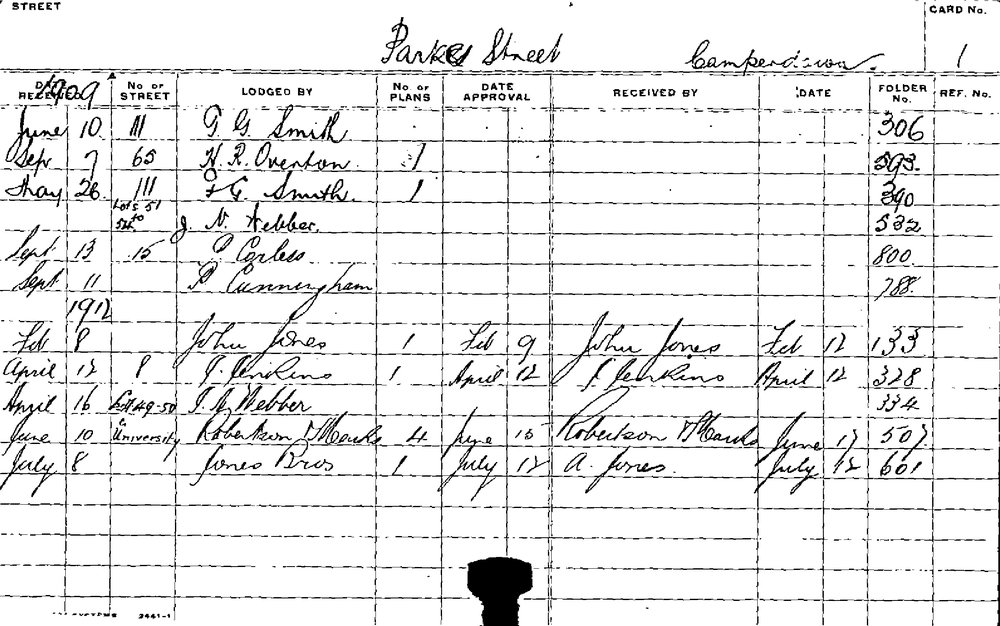 STREET CARD No.
Parker Street Camperdown. 1
1909
DATE RECEIVED No of STREET LODGED BY No. of PLANS DATE APPROVAL RECEIVED BY DATE FOLDER No. REF. No.
June 10. 111 G Smith 306
Sep 7 65 H. R. Overton. 1 593.
May 26. 111 G. Smith. 1 390
Lots 51 to 52 J. N. Webber. 532
Sept 13 15 P Corless 800.
Sept. 11 P Cunningham 788.
1912
Feb 8 John Jones 1 Feb 9 John Jones Feb 12 133
April 12 8 J. Jenkins 1 April 12 J. Jenkins April 12 328
April 16 Lot 49-50 J. N. Webber 334
June 10 University Robertson & Marks 4 June 15 Robertson & Marks June 17 507
July 8 Jones Bros 1 July 12 A. Jones. July 12 601
2441-1